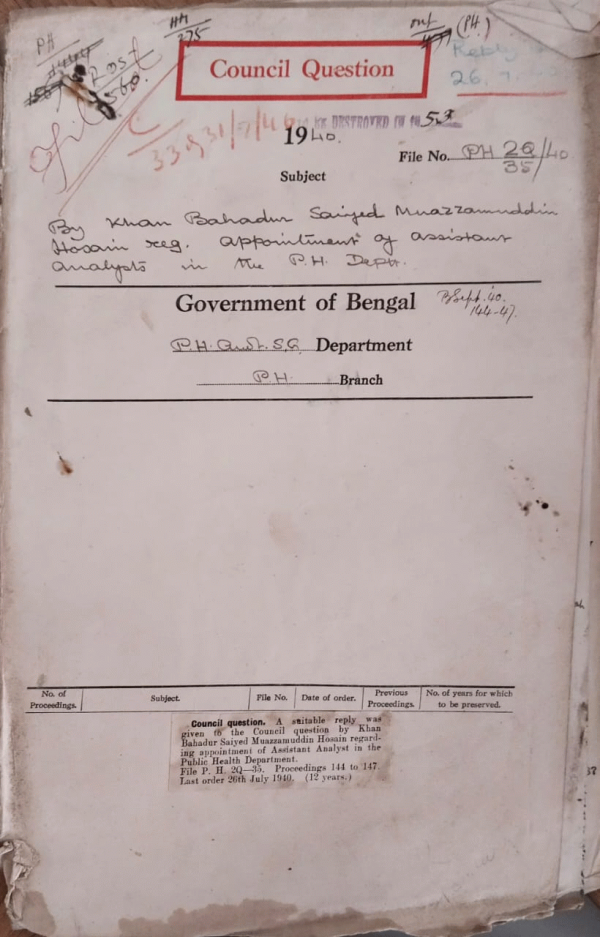 PH
HM
275
(PH)
Council Question
26.7.
331 31/7/40
TO BE DESTROYED IN 1953
1940.
File No. PH 2Q/35/40
Subject
By Khan Bahadur Saiyed Muazzamuddin
Hosain reg. appointment of assistant
analysts in the P.H. Deptt.
Government of Bengal
B/Sept. '40.
144-47.
Department
P.H. Branch
No. of
Proceedings.
Subject.
File No.
Date of order.
Previous
Proceedings.
No. of years for which
to be preserved.
Council question. A suitable reply was
given to the Council question by Khan
Bahadur Saiyed Muazzamuddin Hosain regard-
ing appointment of Assistant Analyst in the
Public Health Department.
File P. H. 2Q—35. Proceedings 144 to 147.
Last order 26th July 1940. (12 years.)